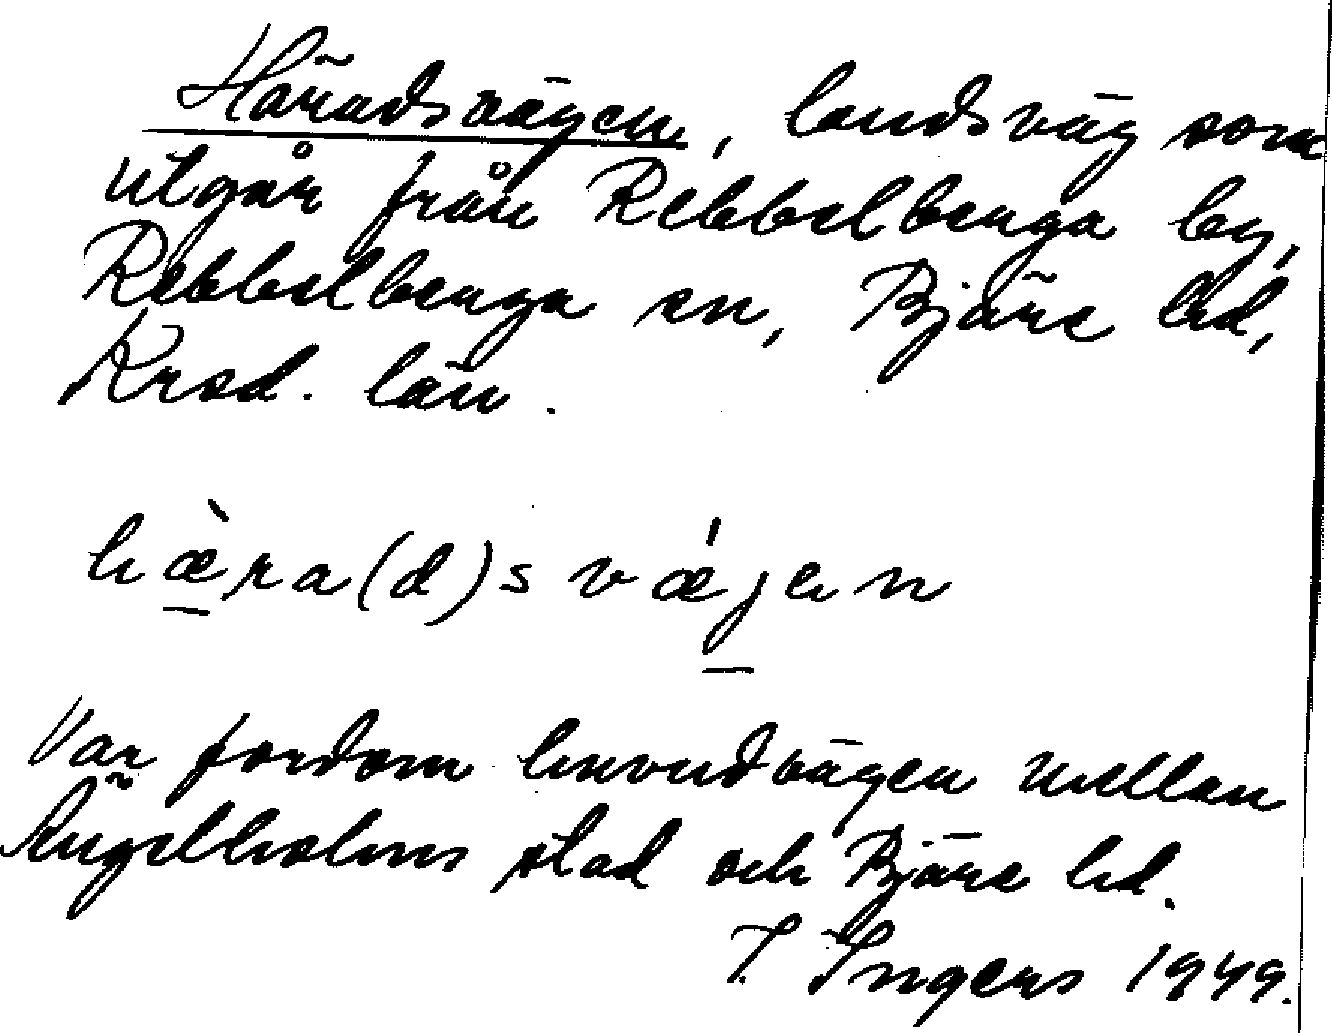 Häradsvägen, landsväg som
utgår från Rebbelberga by,
Rebbelberga sn, Bjäre hd,
Krsd. län.
hæ̀ra(d)s vǽjen
Var fordom huvudvägen mellan
Ängelholms stad och Bjäre hd.
I. Ingers 1949.